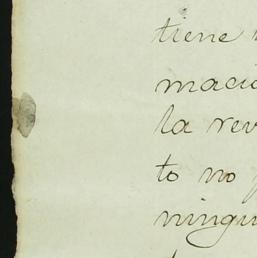 tiene
macio
la rev
to no
ningu